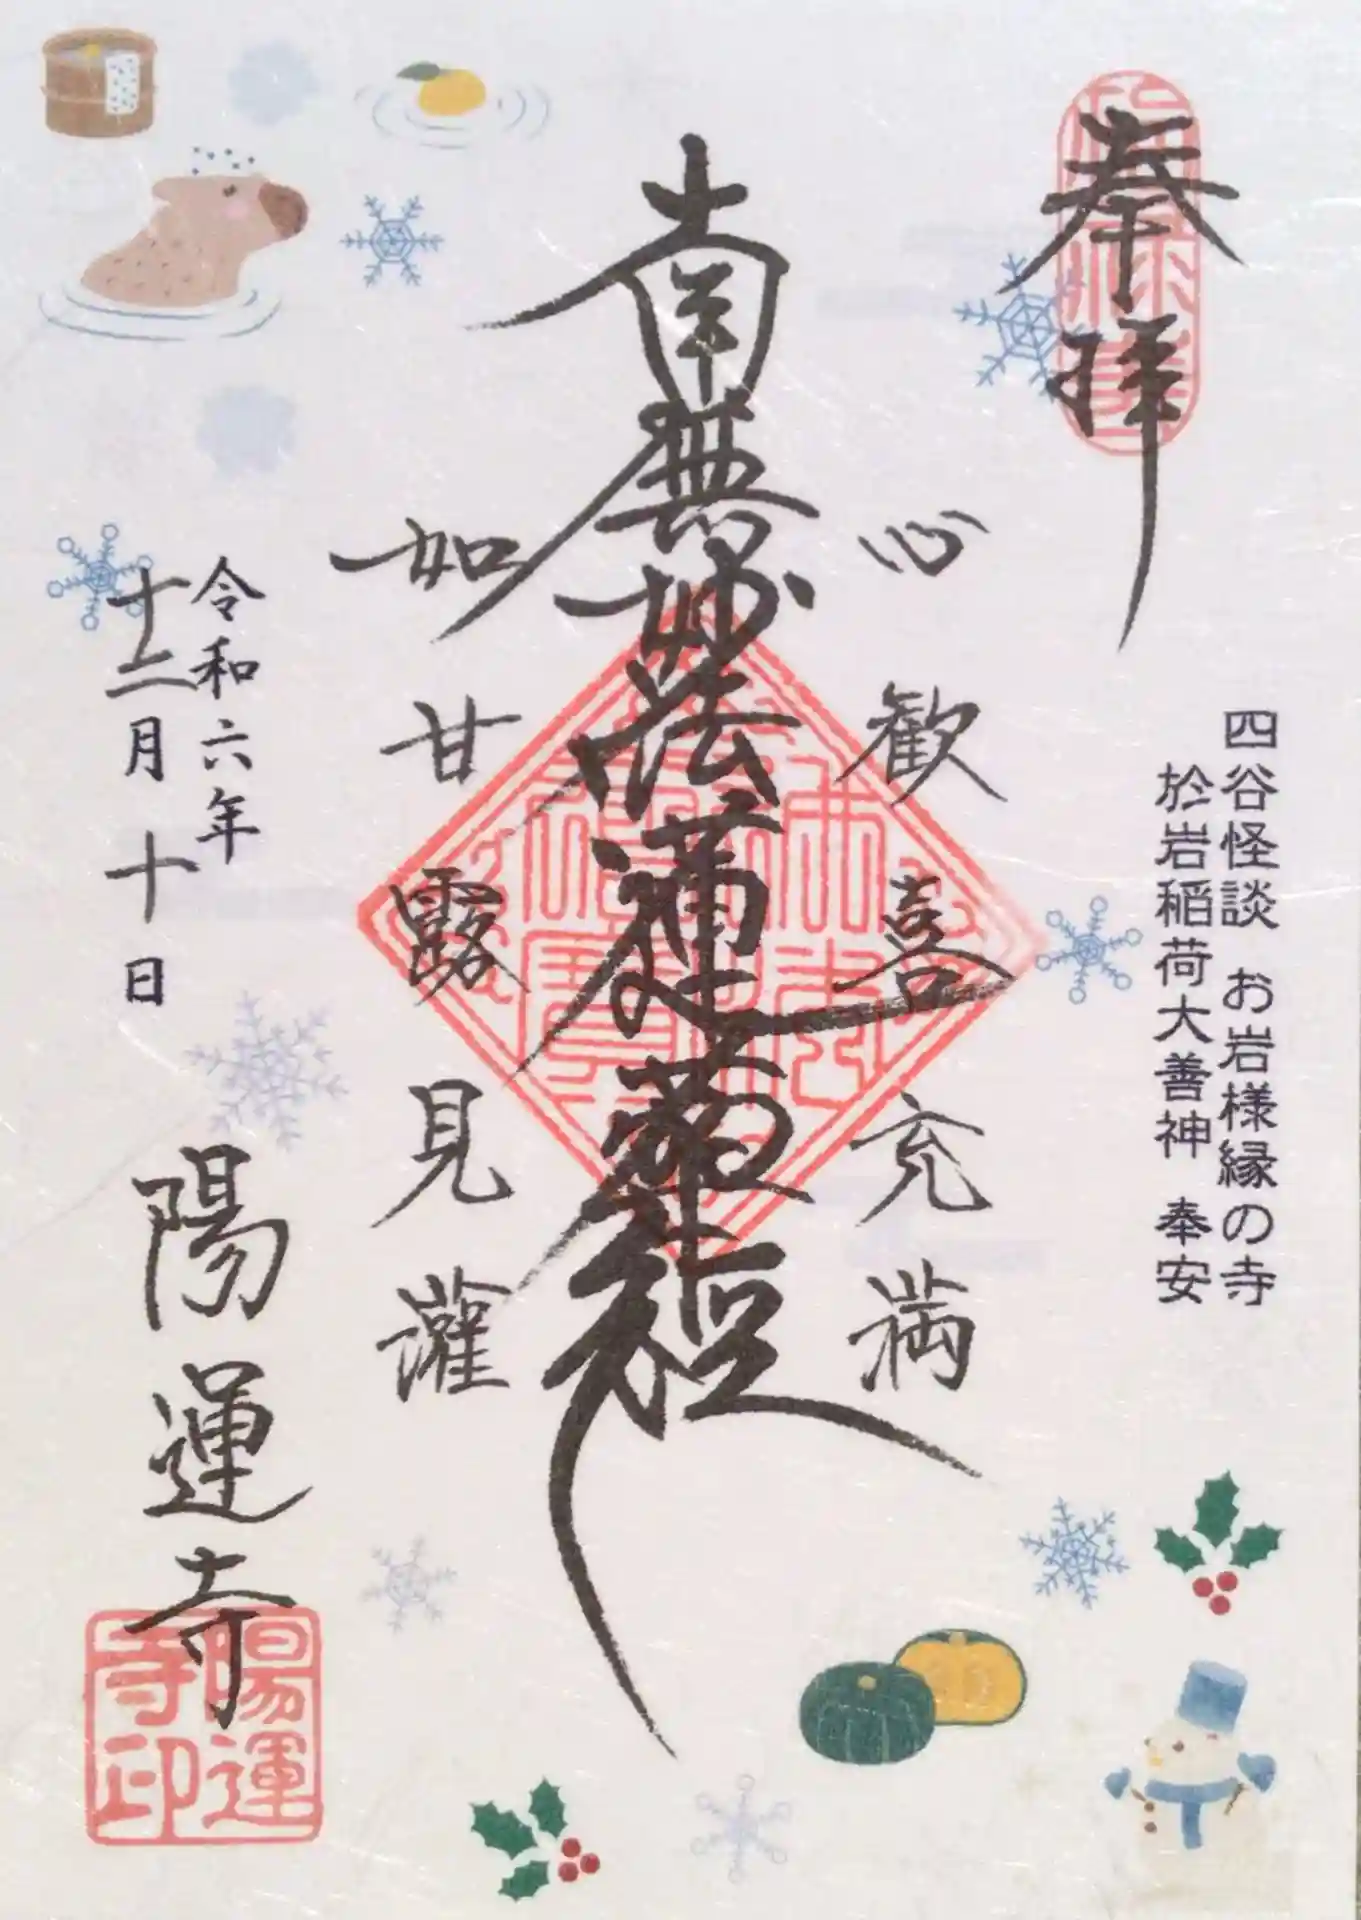 奉拝
四谷怪談 お岩様縁の寺
於岩稲荷大善神 奉安
心歓喜充満
南無妙法蓮華経
如甘露見灌
令和六年
十二月十日
陽運寺
陽運寺印